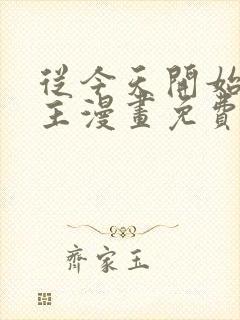 從今天開始
王漫畫免費
齊家玉